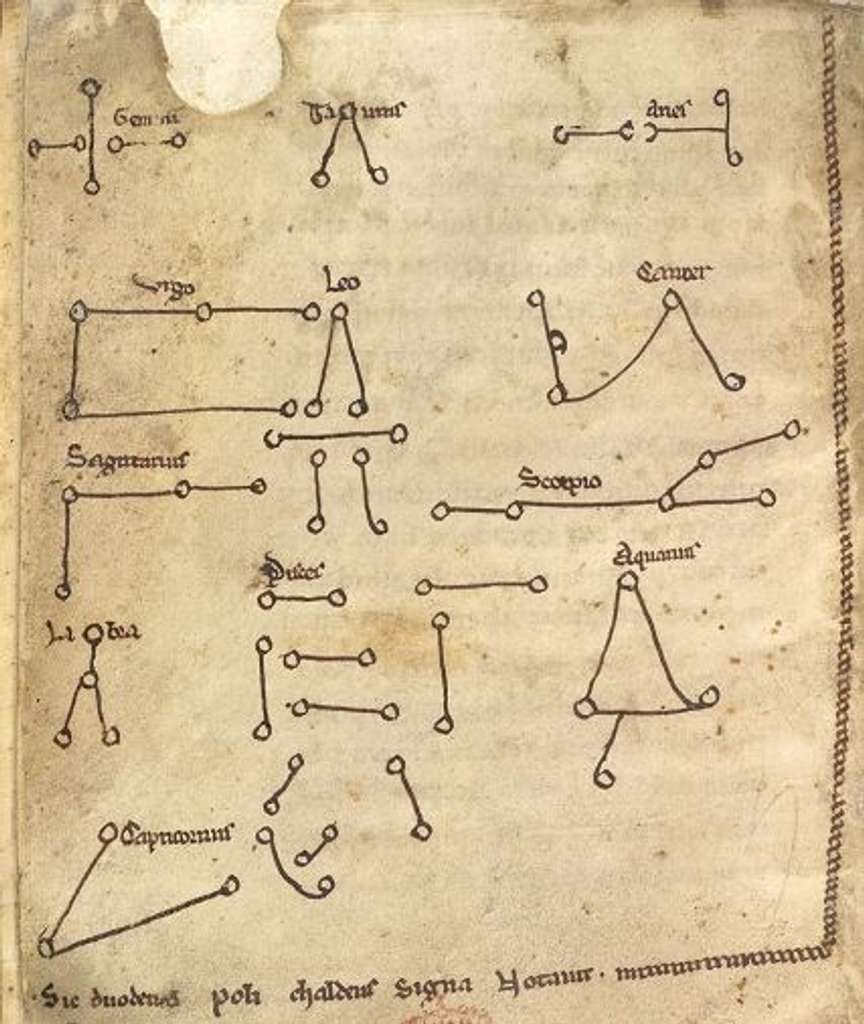 Gemini Taurus Aries
Virgo Leo Cancer
Sagittarius Scorpio
Pisces Aquarius
Libra
Capricornus
Sic duodenis poli chaldeus signa Notauit.